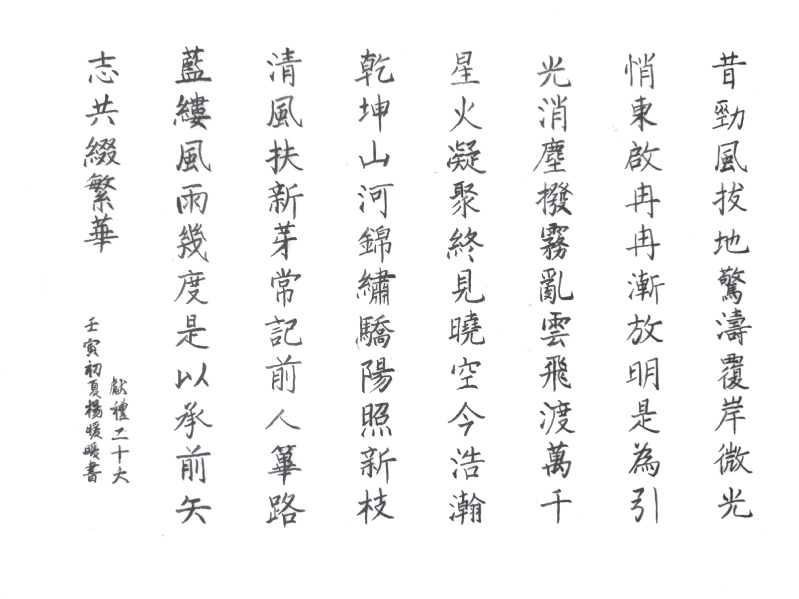 昔勁風拔地驚濤覆岸微光
悄東啟冉冉漸放明是為引
光消塵撥霧亂雲飛渡萬千
星火凝聚終見曉空今浩瀚
乾坤山河錦繡驕陽照新枝
清風扶新芽常記前人篳路
藍縷風雨幾度是以承前矢
志共綴繁華
獻禮二十大
壬寅初夏楊暖暖書